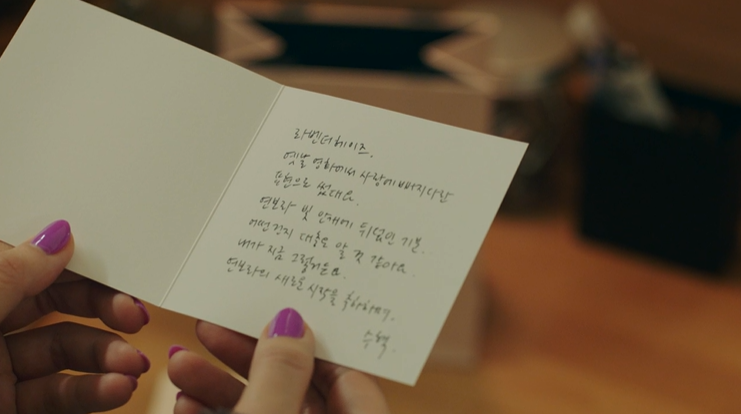 라벤더헤이즈.
옛날 영화에서 사랑에 빠지다란
표현으로 썼대요.
연보라 빛 안개에 뒤덮인 기분.
어떤건지 대충은 알 것 같아요.
내가 지금 그렇거든요.
연보라의 새로운 시작을 축하하며.
수혁.